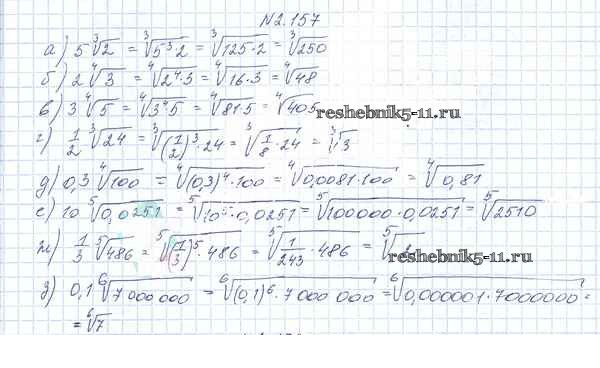 N2.157
а) 5∛2 = ∛(5³·2) = ∛(125·2) = ∛250
б) 2∜3 = ∜(2⁴·3) = ∜(16·3) = ∜48
в) 3∜5 = ∜(3⁴·5) = ∜(81·5) = ∜405
reshebnik5-11.ru
г) 1/2 ∛24 = ∛((1/2)³·24) = ∛(1/8·24) = ∛3
д) 0,3 ∜100 = ∜((0,3)⁴·100) = ∜(0,0081·100) = ∜0,81
е) 10 ⁵√0,0251 = ⁵√(10⁵·0,0251) = ⁵√(100000·0,0251) = ⁵√2510
ж) 1/3 ⁵√486 = ⁵√((1/3)⁵·486) = ⁵√(1/243·486) = ⁵√2
reshebnik5-11.ru
з) 0,1 ⁶√7000000 = ⁶√((0,1)⁶·7000000) = ⁶√(0,000001·7000000) =
= ⁶√7